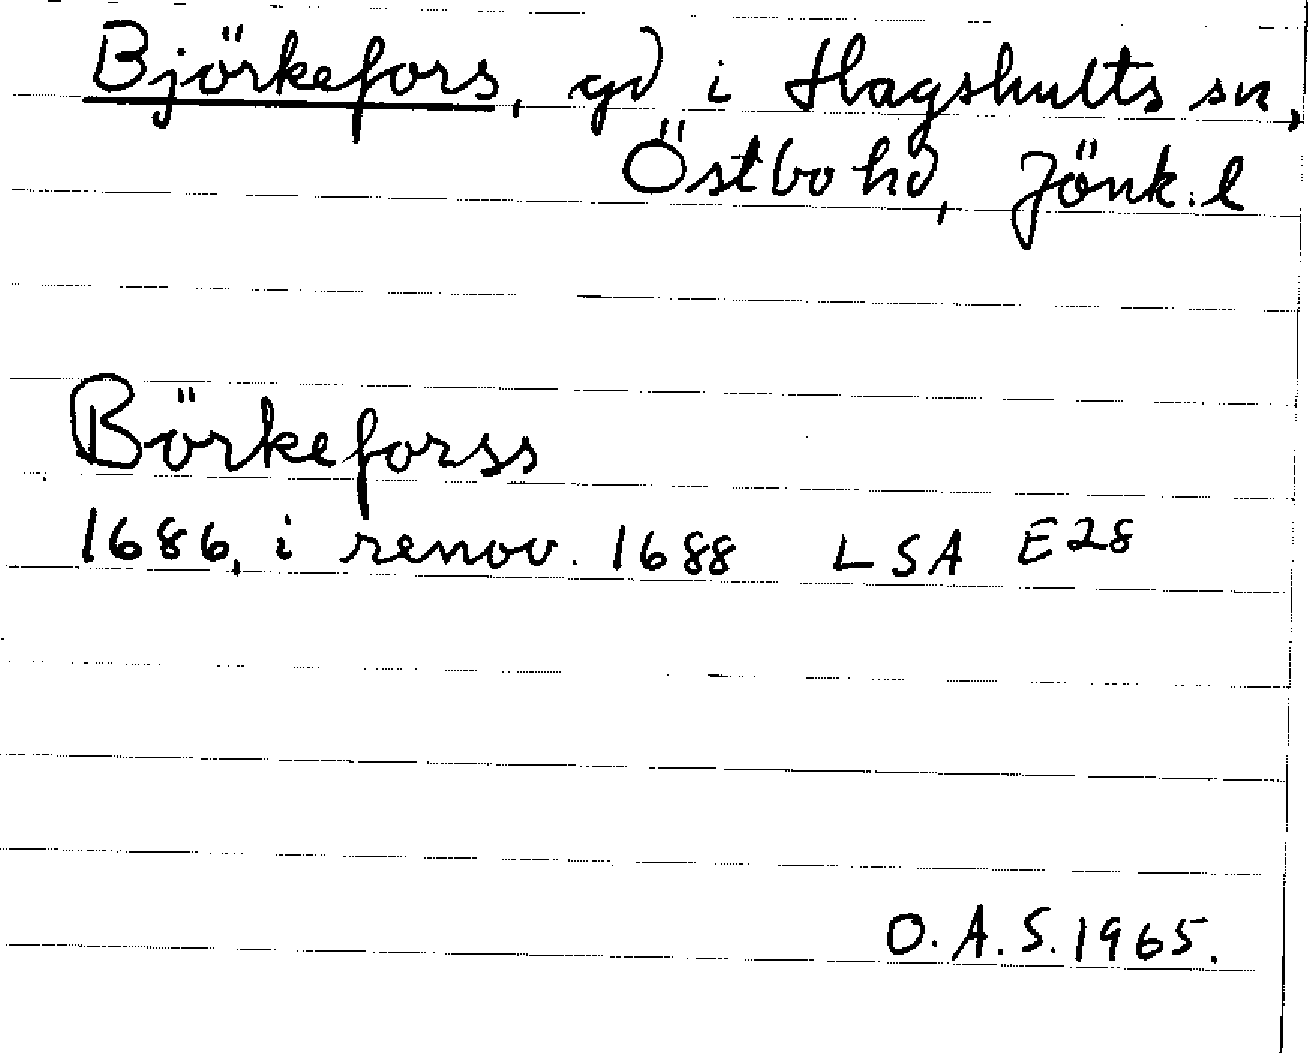 Björkefors, gd i Hagshults sn,
Östbo hd, Jönk.l
Börkeforss
1686, i renov. 1688 LSA E28
O.A.S. 1965.